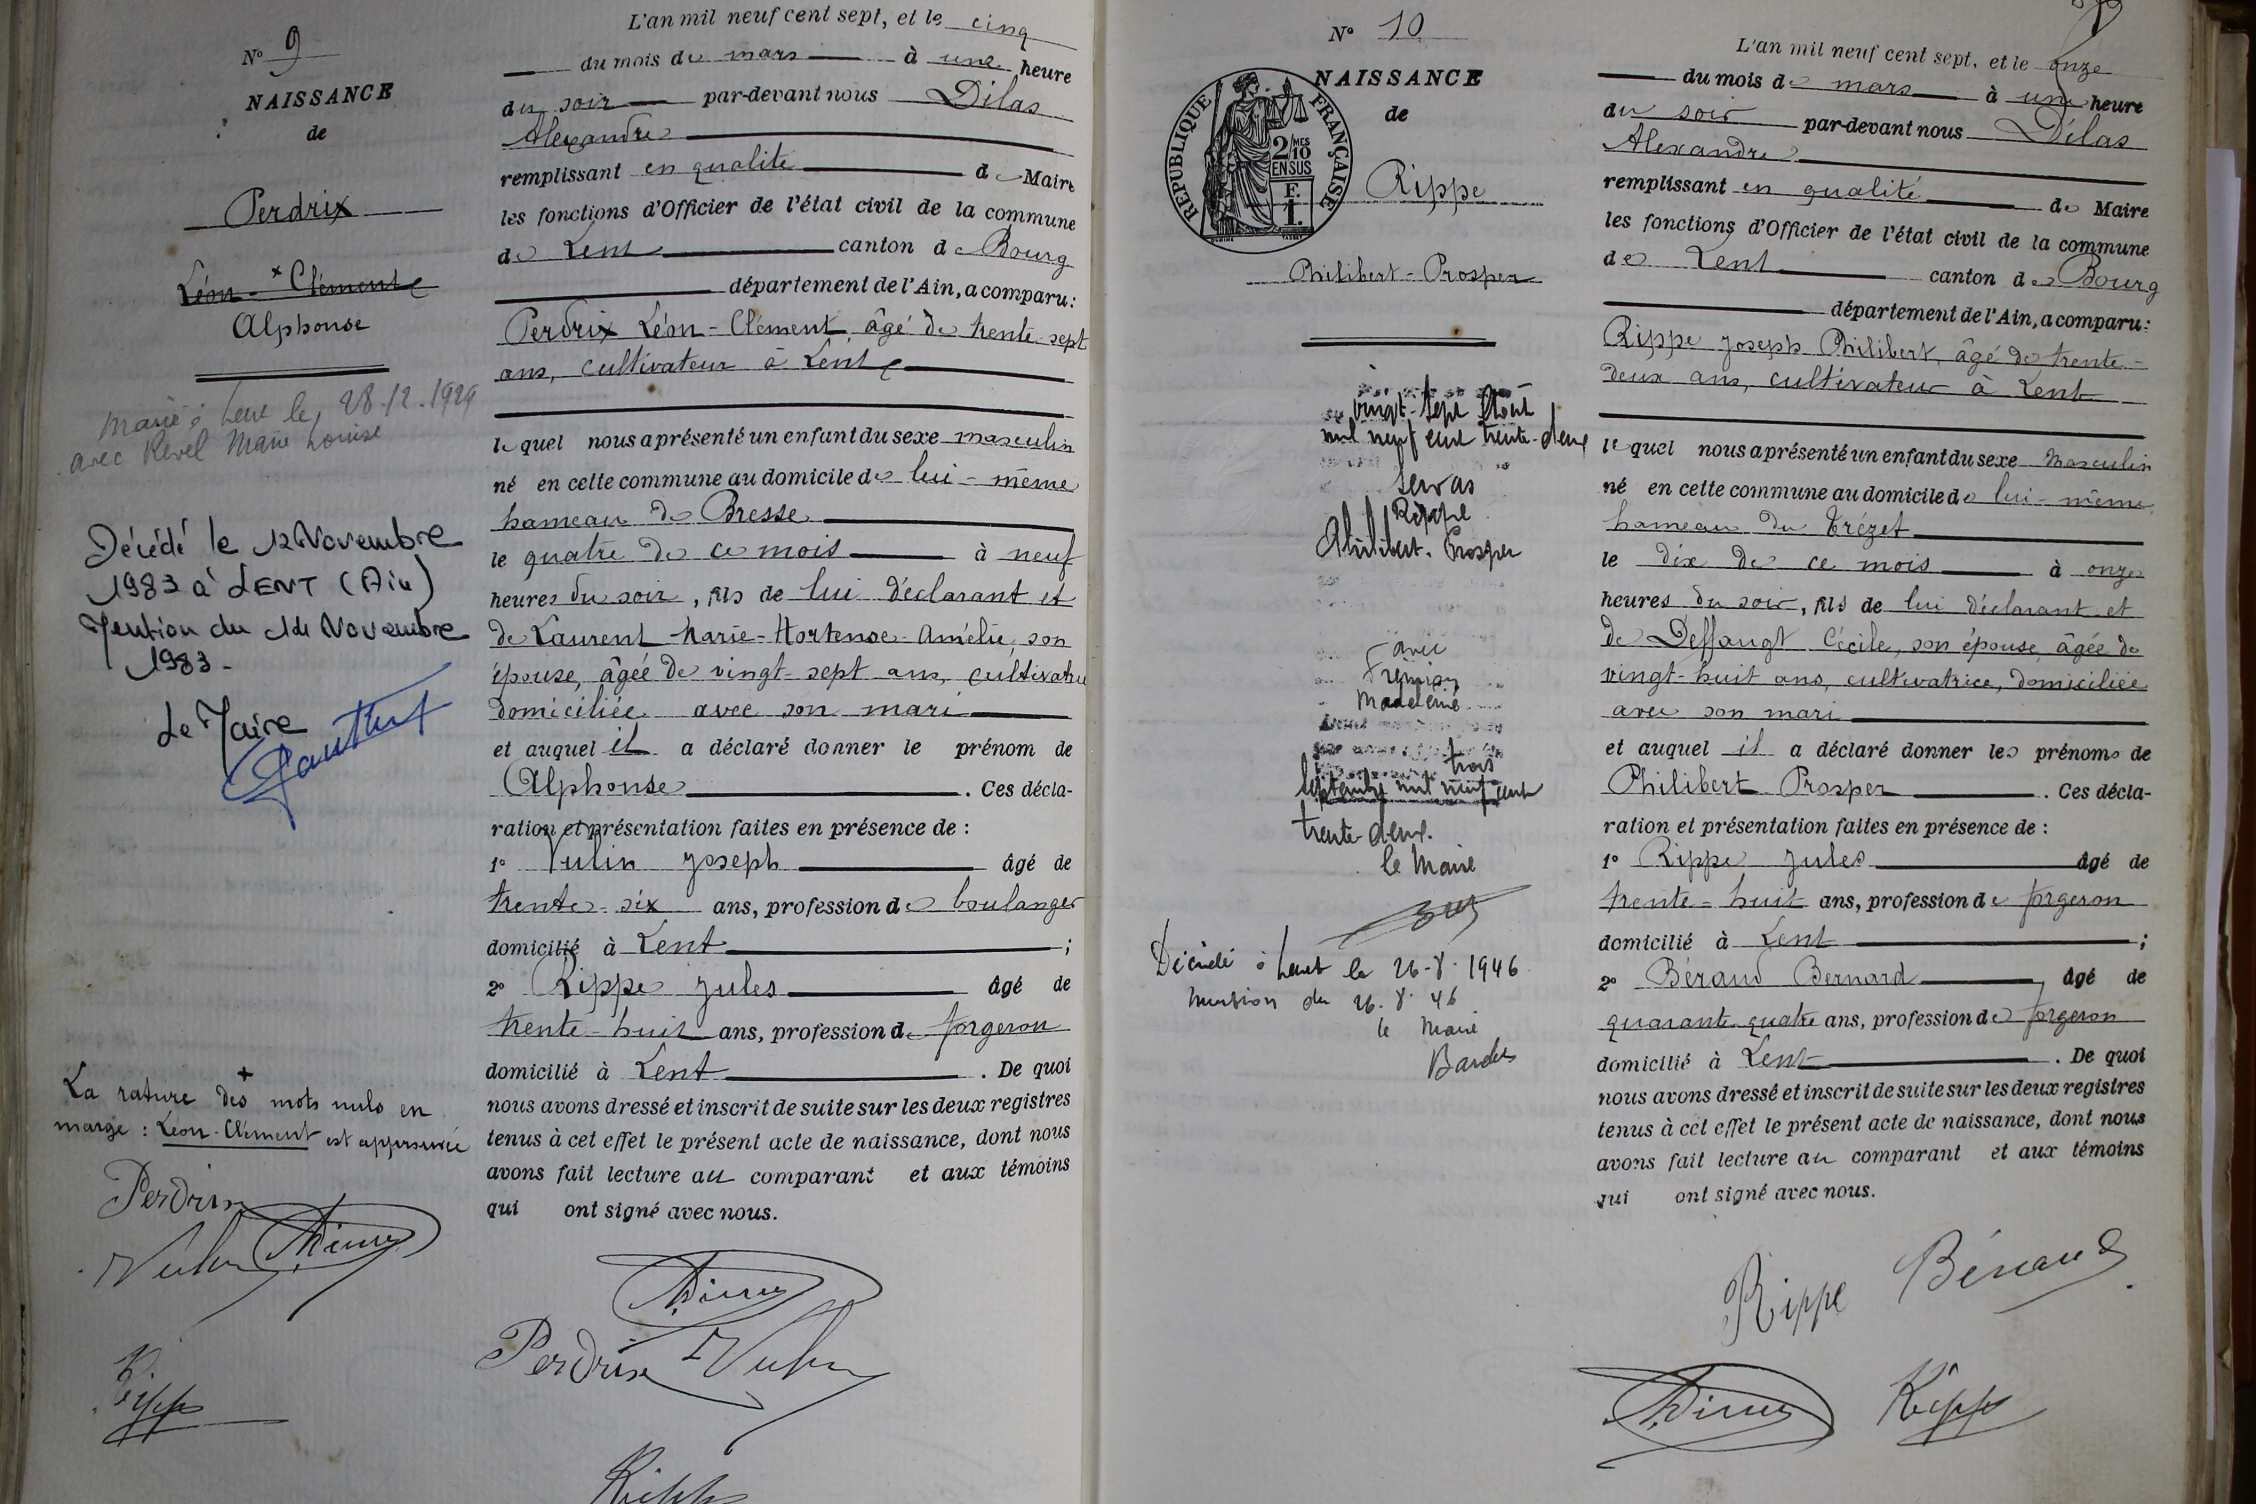 N° 9
NAISSANCE
de
Perdrix
Léon - Clément
Alphonse
Marié à Lent le 28-12-1929
avec Revel Marie Louise
Décédé le 12 Novembre
1983 à LENT (Ain)
Mention du 14 Novembre
1983 -
Le Maire
La rature des mots nuls en
marge : Léon-Clément est approuvée
Perdrix
Vulin
Rippe
L'an mil neuf cent sept, et le cinq
du mois de mars à une heure
du soir par-devant nous Dilas
Alexandre
remplissant en qualité de Maire
les fonctions d'Officier de l'état civil de la commune
de Lent canton de Bourg
département de l'Ain, a comparu :
Perdrix Léon - Clément âgé de trente-sept
ans, cultivateur à Lent
lequel nous a présenté un enfant du sexe masculin
né en cette commune au domicile de lui-même
hameau de Bresse
le quatre de ce mois à neuf
heures du soir, fils de lui déclarant et
de Laurent Marie-Hortense-Amélie, son
épouse, âgée de vingt-sept ans, cultivatrice
domiciliée avec son mari
et auquel il a déclaré donner le prénom de
Alphonse . Ces décla-
ration et présentation faites en présence de :
1° Vulin Joseph âgé de
trente-six ans, profession de boulanger
domicilié à Lent ;
2° Rippe Jules âgé de
trente-huit ans, profession de forgeron
domicilié à Lent . De quoi
nous avons dressé et inscrit de suite sur les deux registres
tenus à cet effet le présent acte de naissance, dont nous
avons fait lecture au comparant et aux témoins
qui ont signé avec nous.
Perdrix Vulin
Rippe
N° 10
NAISSANCE
de
REPUBLIQUE FRANÇAISE
2/10 MES
EN SUS
F.
1.
Rippe
Philibert-Prosper
vingt-sept Août
mil neuf cent trente-deux
Servas
Rippe
Philibert. Prosper
avec
Madeleine
trois
Septembre mil neuf cent
trente-deux.
le Maire
Décédé à Lent le 26-8-1946
Mention du 26.8.46
le Maire
L'an mil neuf cent sept, et le onze
du mois de mars à une heure
du soir par-devant nous Dilas
Alexandre
remplissant en qualité de Maire
les fonctions d'Officier de l'état civil de la commune
de Lent canton de Bourg
département de l'Ain, a comparu :
Rippe Joseph Philibert, âgé de trente-
deux ans, cultivateur à Lent
lequel nous a présenté un enfant du sexe masculin
né en cette commune au domicile de lui-même
hameau du Trézet
le dix de ce mois à onze
heures du soir, fils de lui déclarant et
de Deffangt Cécile, son épouse, âgée de
vingt-huit ans, cultivatrice, domiciliée
avec son mari
et auquel il a déclaré donner les prénoms de
Philibert Prosper . Ces décla-
ration et présentation faites en présence de :
1° Rippe Jules âgé de
trente-huit ans, profession de forgeron
domicilié à Lent ;
2° Béraud Bernard, âgé de
quarante quatre ans, profession de forgeron
domicilié à Lent . De quoi
nous avons dressé et inscrit de suite sur les deux registres
tenus à cet effet le présent acte de naissance, dont nous
avons fait lecture au comparant et aux témoins
qui ont signé avec nous.
Rippe Béraud
Rippe